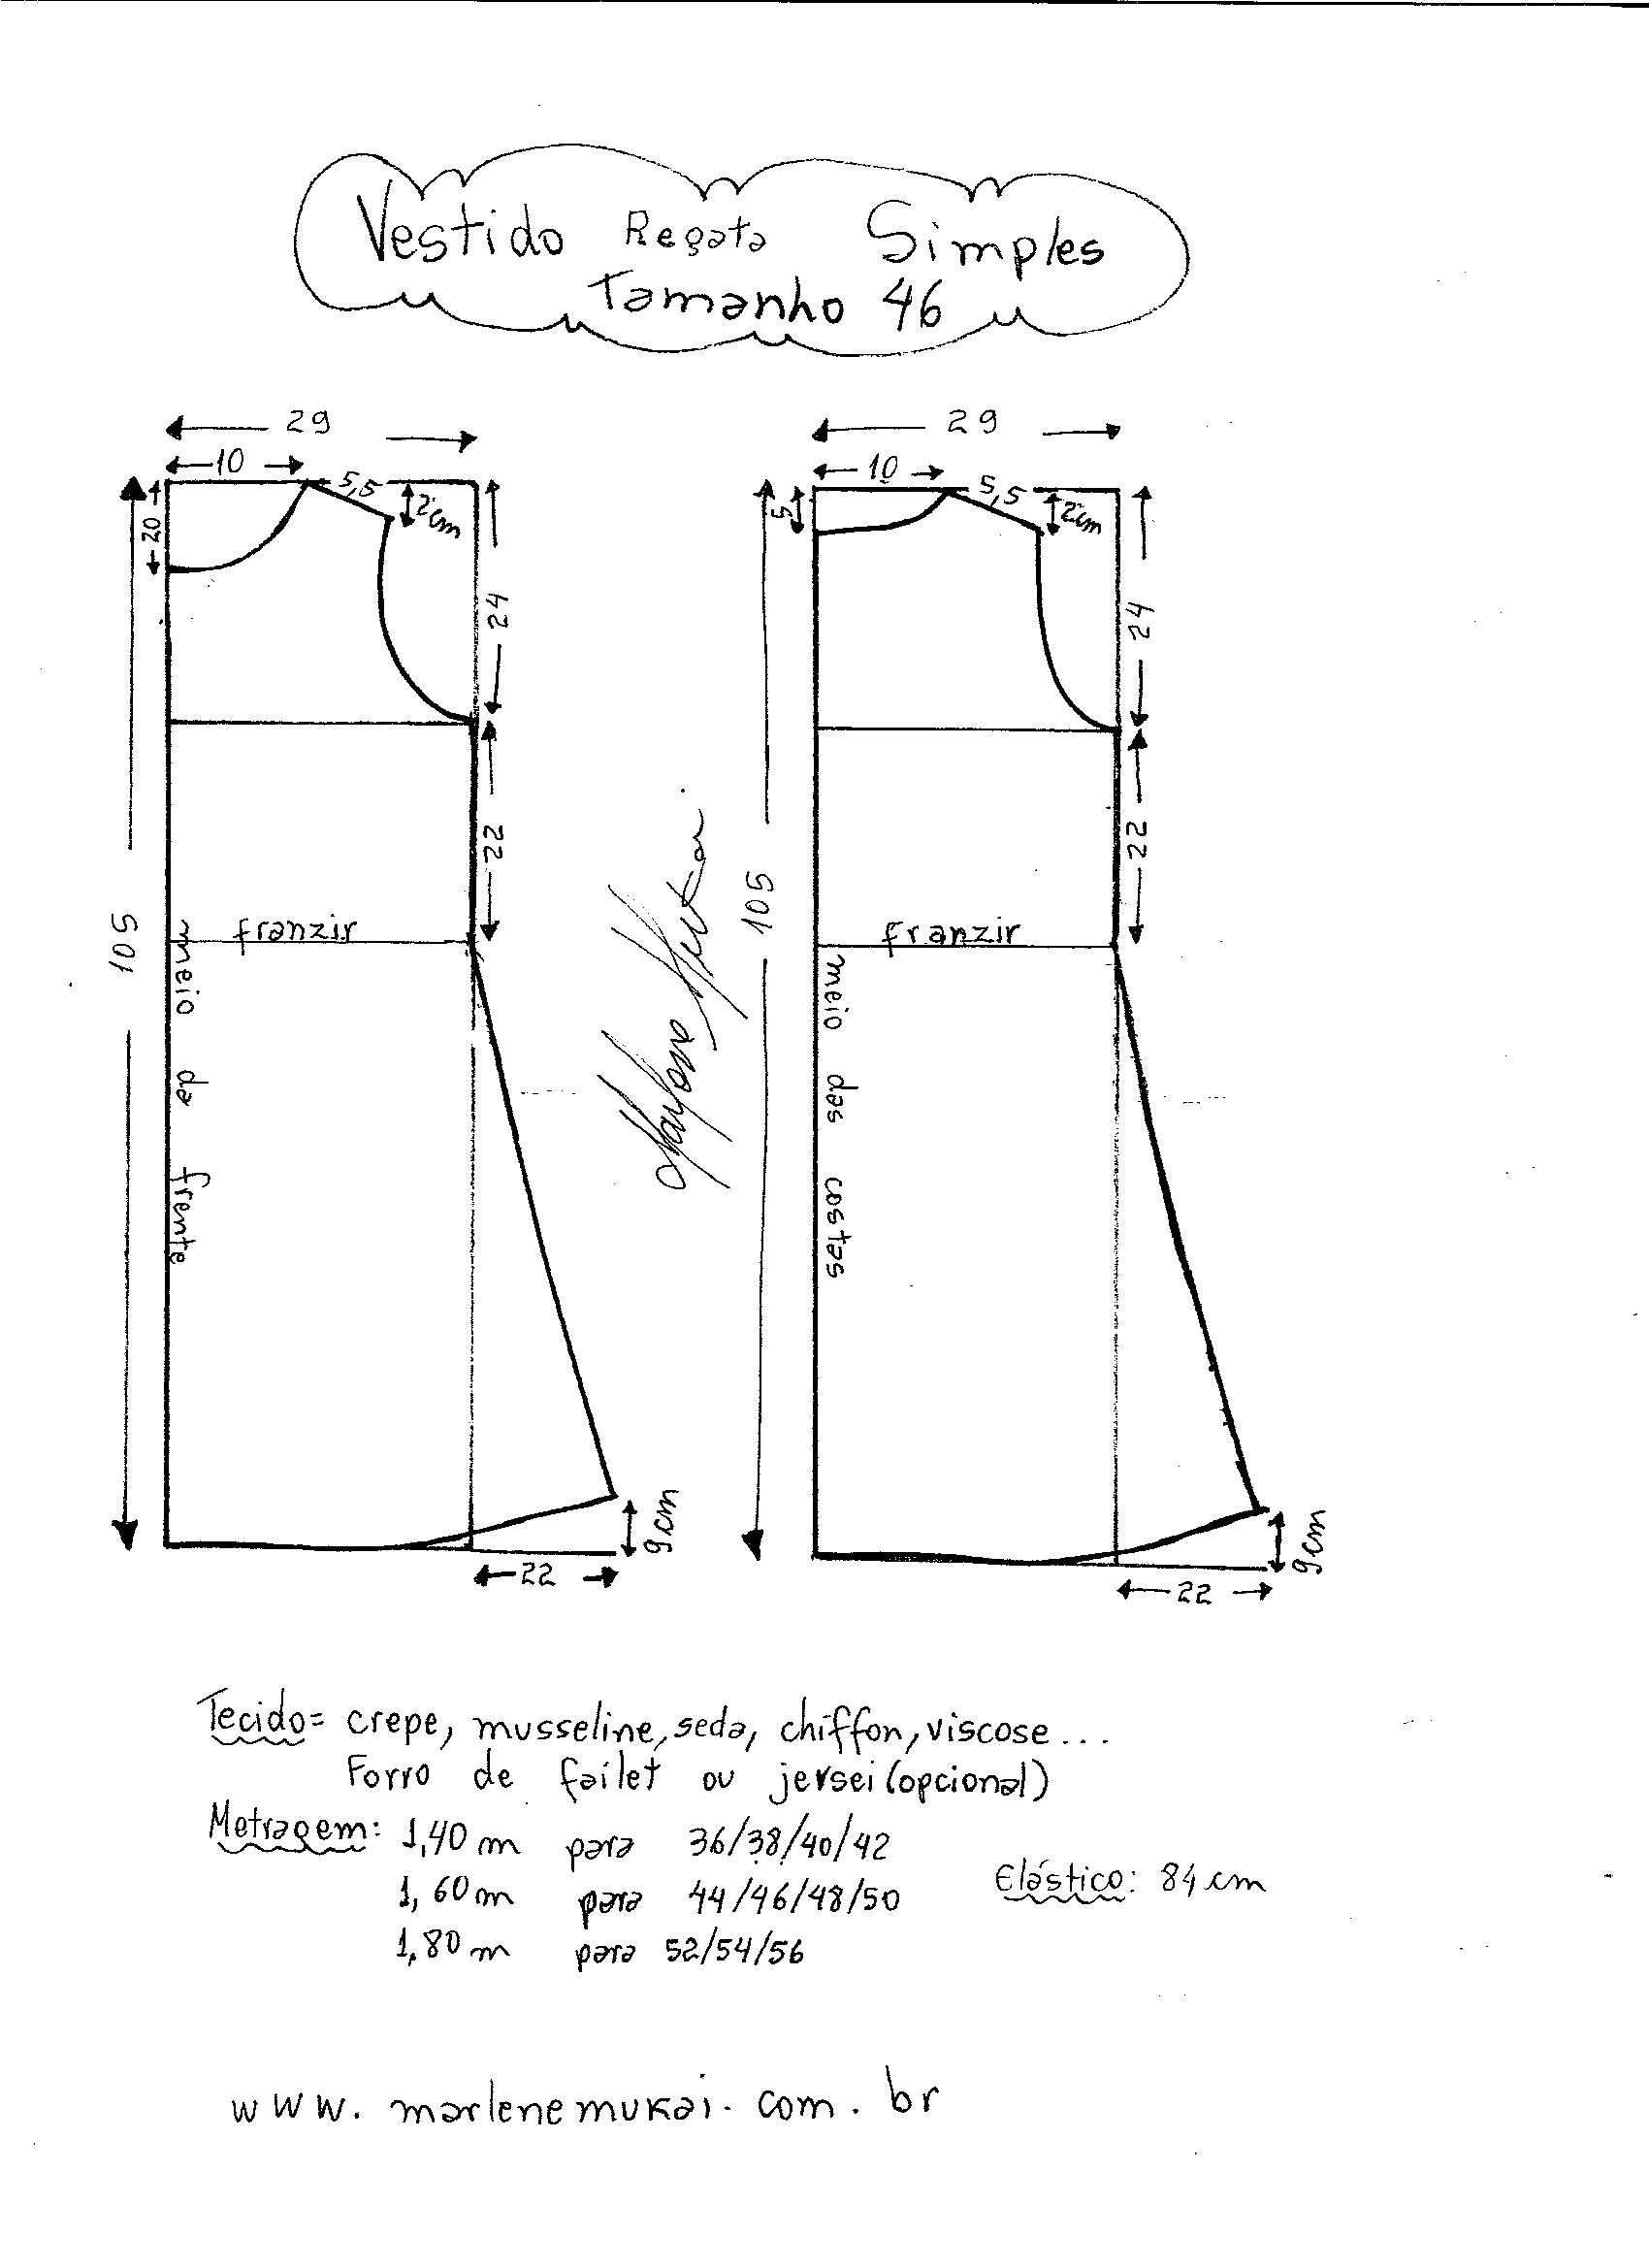 Vestido Regata Simples
Tamanho 46
29
10
5,5
2cm
20
24
22
105
franzir
meio da frente
9cm
22
29
10
5,5
2cm
5
24
22
105
franzir
meio das costas
9cm
22
Tecido= crepe, musseline, seda, chiffon, viscose...
Forro de failet ou jersei (opcional)
Metragem: 1,40 m para 36/38/40/42
1,60 m para 44/46/48/50
Elástico: 84 cm
1,80 m para 52/54/56
www.marlenemukai.com.br